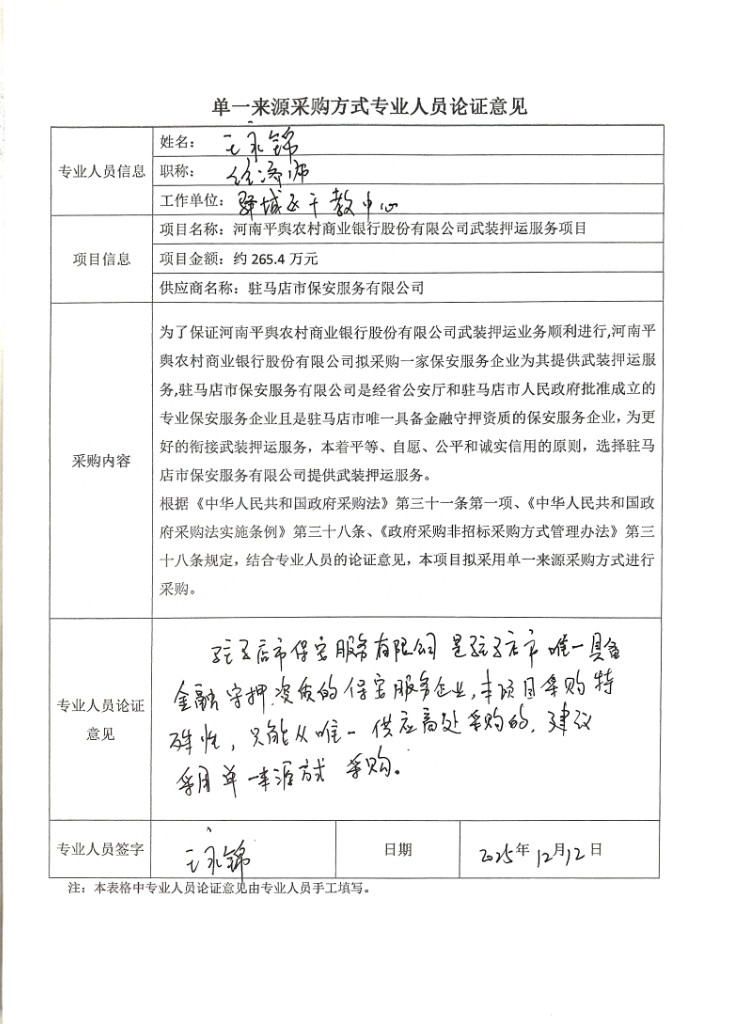 单一来源采购方式专业人员论证意见
专业人员信息
姓名：王永锦
职称：经济师
工作单位：驿城区干教中心
项目信息
项目名称：河南平舆农村商业银行股份有限公司武装押运服务项目
项目金额：约 265.4 万元
供应商名称：驻马店市保安服务有限公司
采购内容
为了保证河南平舆农村商业银行股份有限公司武装押运业务顺利进行,河南平
舆农村商业银行股份有限公司拟采购一家保安服务企业为其提供武装押运服
务,驻马店市保安服务有限公司是经省公安厅和驻马店市人民政府批准成立的
专业保安服务企业且是驻马店市唯一具备金融守押资质的保安服务企业，为更
好的衔接武装押运服务，本着平等、自愿、公平和诚实信用的原则，选择驻马
店市保安服务有限公司提供武装押运服务。
根据《中华人民共和国政府采购法》第三十一条第一项、《中华人民共和国政
府采购法实施条例》第三十八条、《政府采购非招标采购方式管理办法》第三
十八条规定，结合专业人员的论证意见，本项目拟采用单一来源采购方式进行
采购。
专业人员论证
意见
驻马店市保安服务有限公司是驻马店市唯一具备
金融守押资质的保安服务企业,本项目采购特
殊性，只能从唯一供应商处采购的，建议
采用单一来源方式采购。
专业人员签字
王永锦
日期
2025年12月12日
注：本表格中专业人员论证意见由专业人员手工填写。